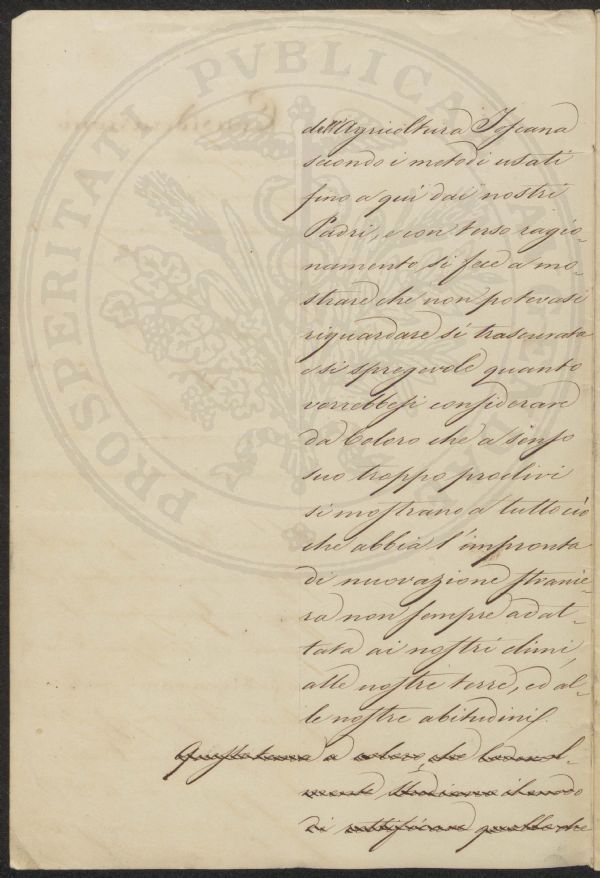 PROSPERITATI PVBLICAE AVGENDAE
dell'Agricoltura Toscana
secondo i metodi usati
fino a quì dai nostri
Padri, e con terso ragio-
namento, si fece a mo-
strare che non potevasi
riguardare sì trascurata
e sì spregevole quanto
vorrebbesi considerare
da Coloro che a senso
suo troppo proclivi
si mostrano a tutto ciò
che abbia l'impronta
di nuovazione stranie-
ra non sempre adat-
tata ai nostri climi,
alle nostre terre, ed al-
le nostre abitudini.
a coloro che
il modo
di rettificare quello che